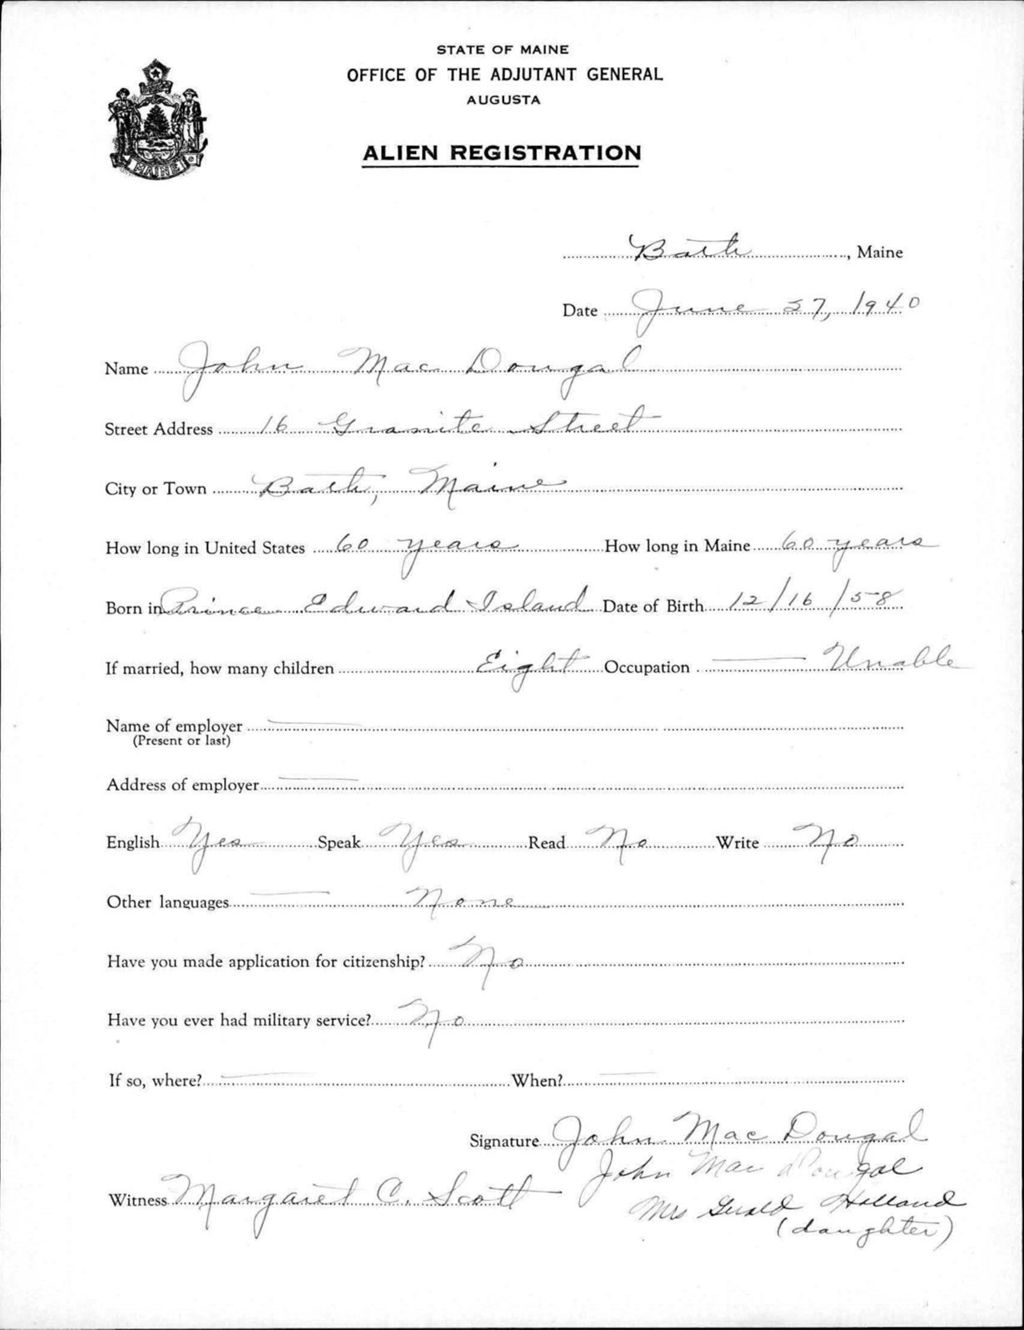 STATE OF MAINE
OFFICE OF THE ADJUTANT GENERAL
AUGUSTA
ALIEN REGISTRATION
MAINE
Bath, Maine
Date June 27, 1940
Name John Mac Dougal
Street Address 16 Granite Street
City or Town Bath, Maine
How long in United States 60 years How long in Maine 60 years
Born in Prince Edward Island Date of Birth 12/16/58
If married, how many children Eight Occupation Unable
Name of employer
(Present or last)
Address of employer
English Yes Speak Yes Read No Write No
Other languages None
Have you made application for citizenship? No
Have you ever had military service? No
If so, where? When?
Signature John Mac Dougal
John Mac Dougal
Witness Margaret C. Scott
Mrs Gerald Holland
(daughter)